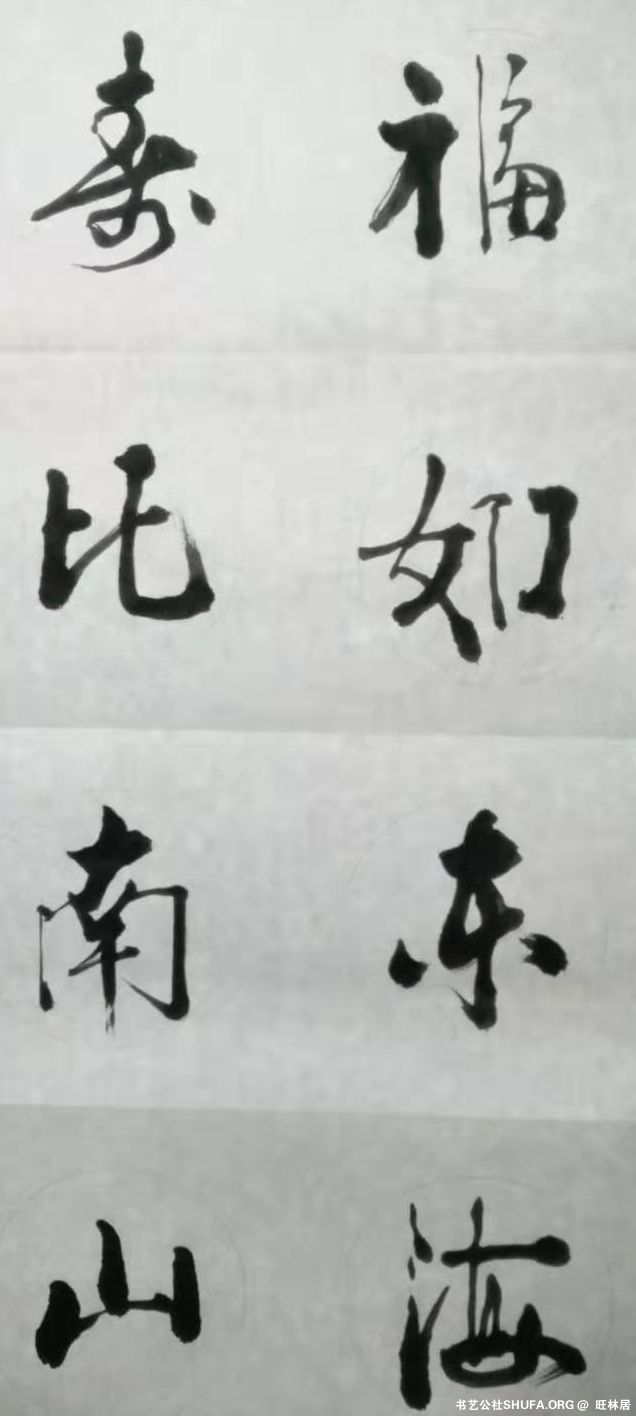 福如东海
寿比南山
书艺公社SHUFA.ORG @ 旺林居